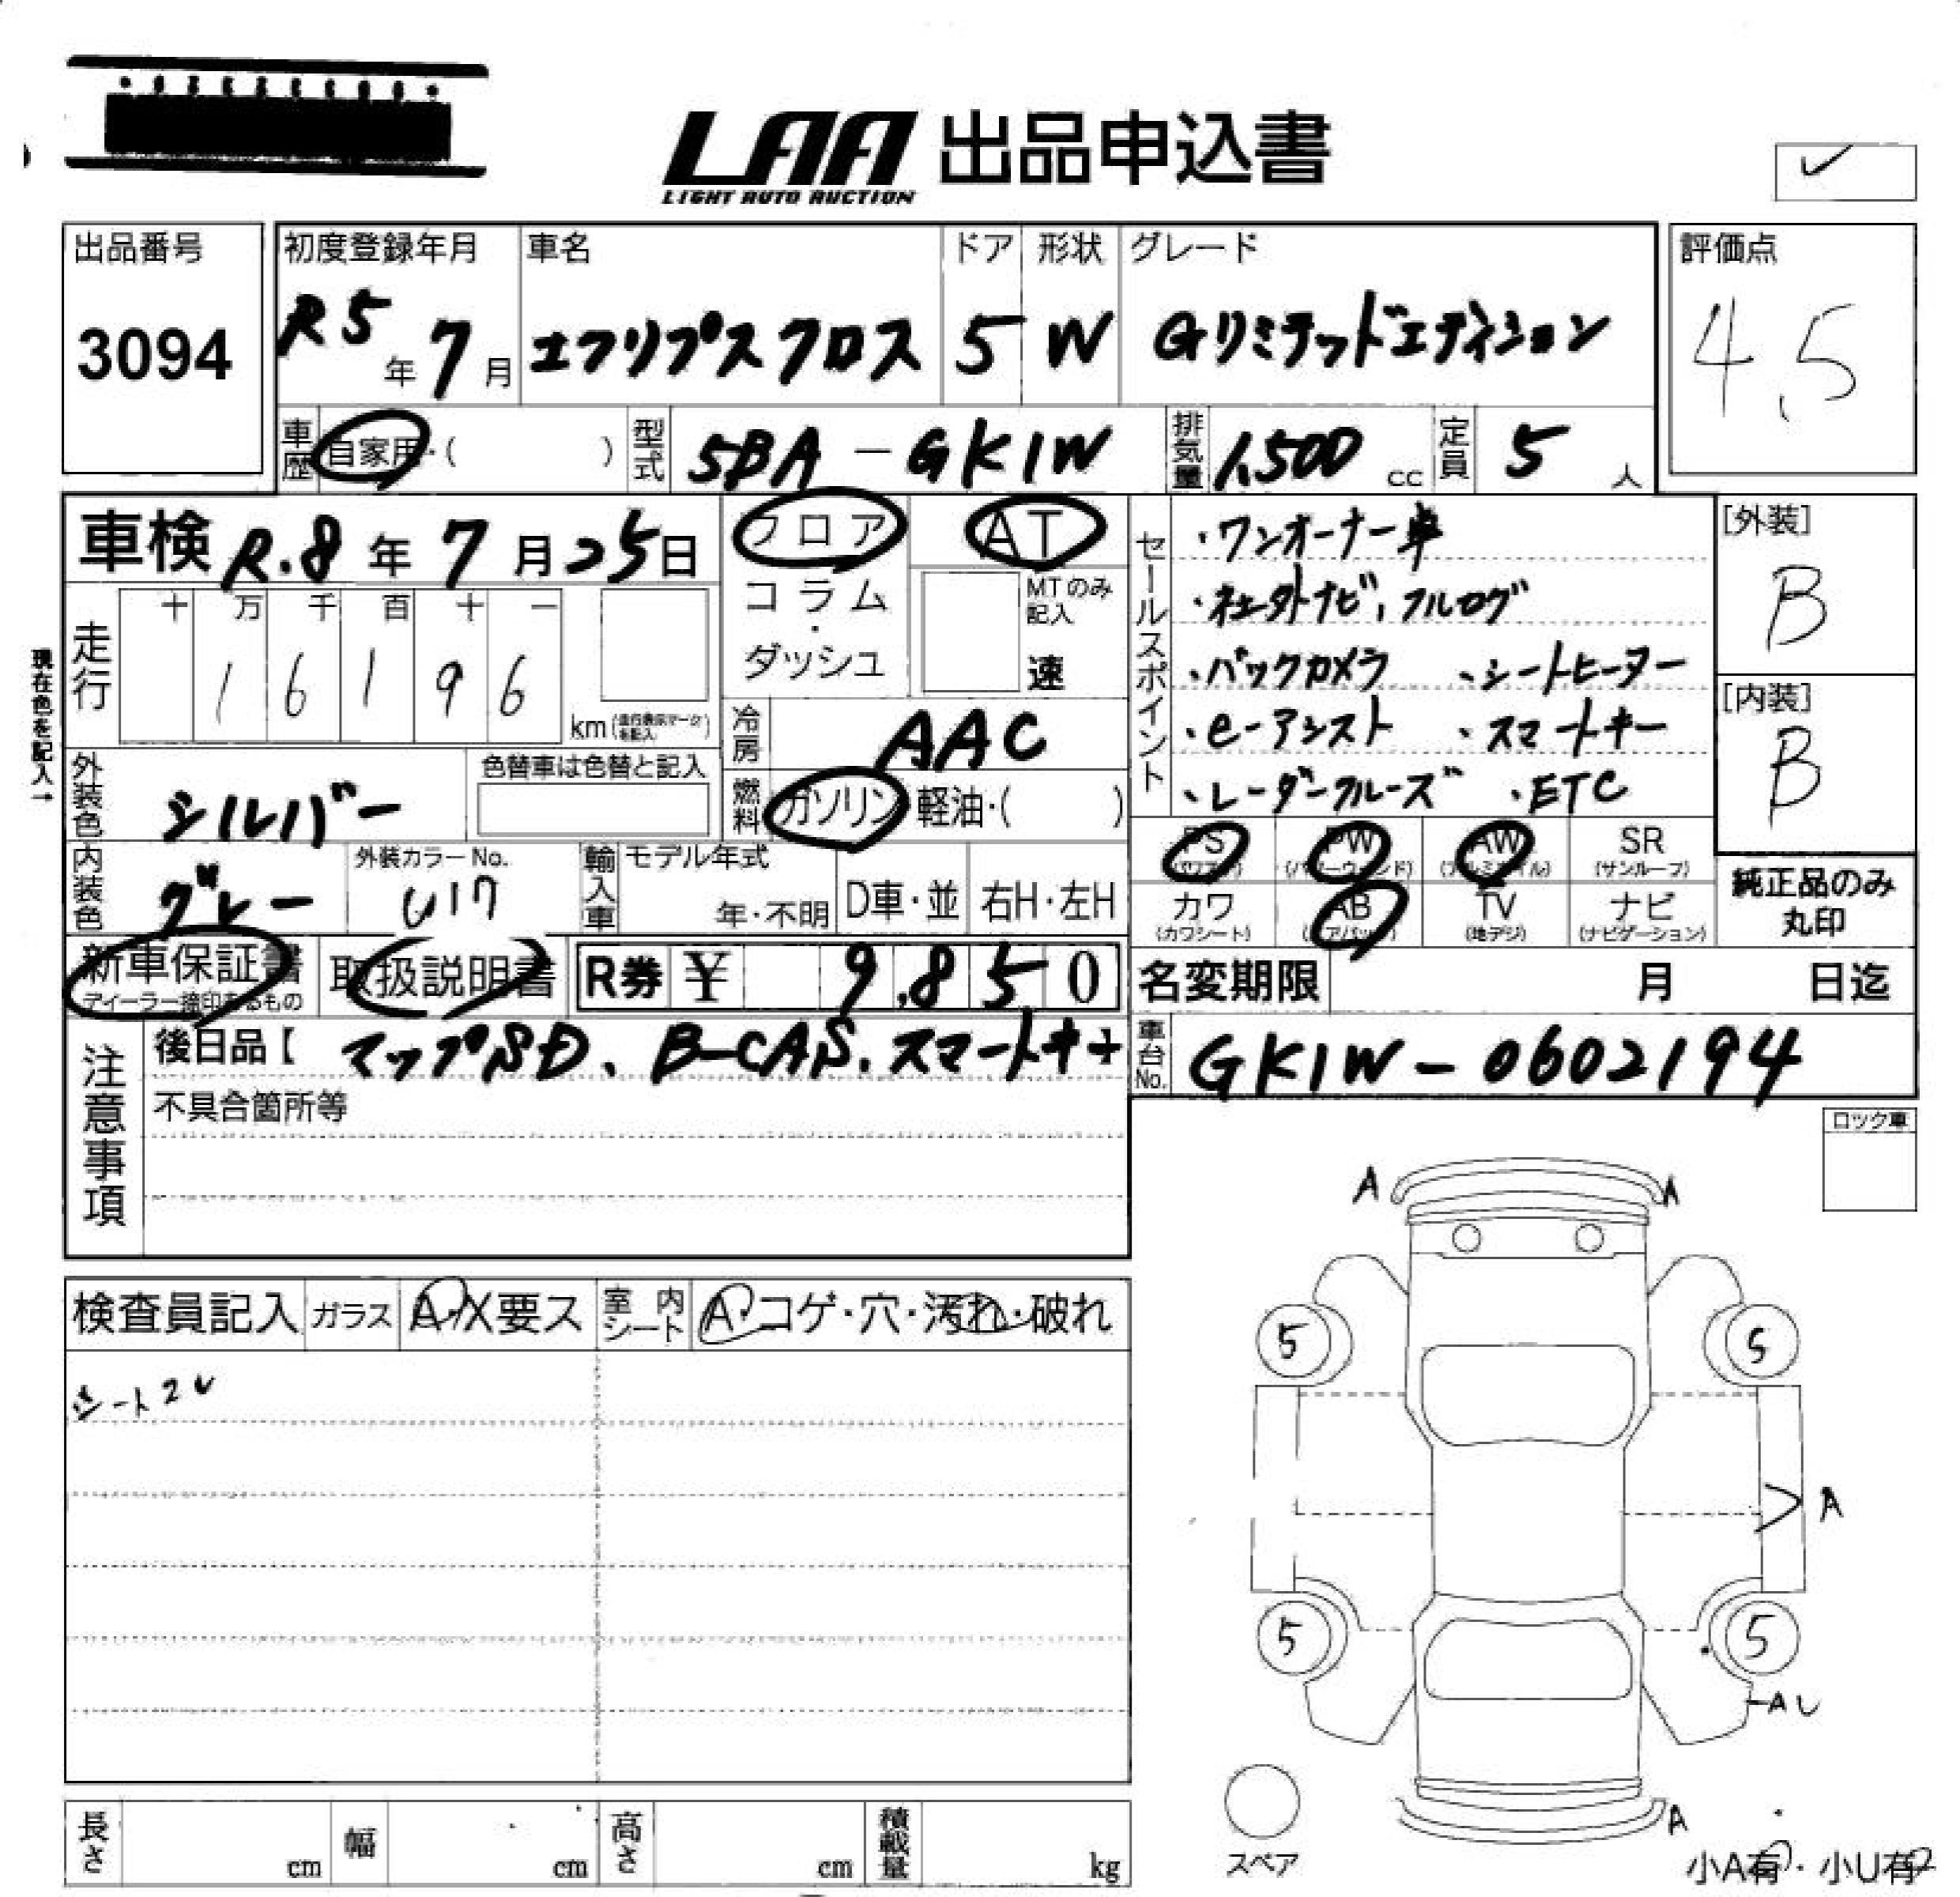 LAA 出品申込書
LIGHT AUTO AUCTION
出品番号 初度登録年月 車名 ドア 形状 グレード 評価点
3094 R5年 7月 エクリプスクロス 5 W Gリミテッドエディション 4.5
車歴 自家用・( ) 型式 5BA-GK1W 排気量 1,500 cc 定員 5 人
車検 R.8年 7月25日 フロア AT
コラム・ダッシュ MTのみ記入 速
走行 十 万 千 百 十 一
1 6 1 9 6 km (走行表示マークを記入)
現在色を記入→
冷房 AAC
外装色 シルバー 色替車は色替と記入
燃料 ガソリン・軽油・( )
内装色 グレー 外装カラーNo. U17 輸入車 モデル年式 年・不明 D車・並 右H・左H
セールスポイント
・ワンオーナー車
・社外ナビ, フルログ
・バックカメラ ・シートヒーター
・e-アシスト ・スマートキー
・レーダークルーズ ・ETC
[外装]
B
[内装]
B
PS (パワステ) PW (パワーウィンド) AW (アルミホイル) SR (サンルーフ)
カワ (カワシート) AB (エアバック) TV (地デジ) ナビ (ナビゲーション)
純正品のみ
丸印
新車保証書 ディーラー捺印あるもの 取扱説明書 R券 ¥ 9,850
名変期限 月 日迄
注意事項
後日品【 マップSD、B-CAS、スマートキー
車台No. GK1W-0602194
不具合箇所等
ロック車
検査員記入 ガラス A・X要ス 室内シート A・コゲ・穴・汚れ・破れ
シート2レ
A A
5 5
A
5 5
AU
A
スペア
小A有・小U有
長さ cm 幅 cm 高さ cm 積載量 kg